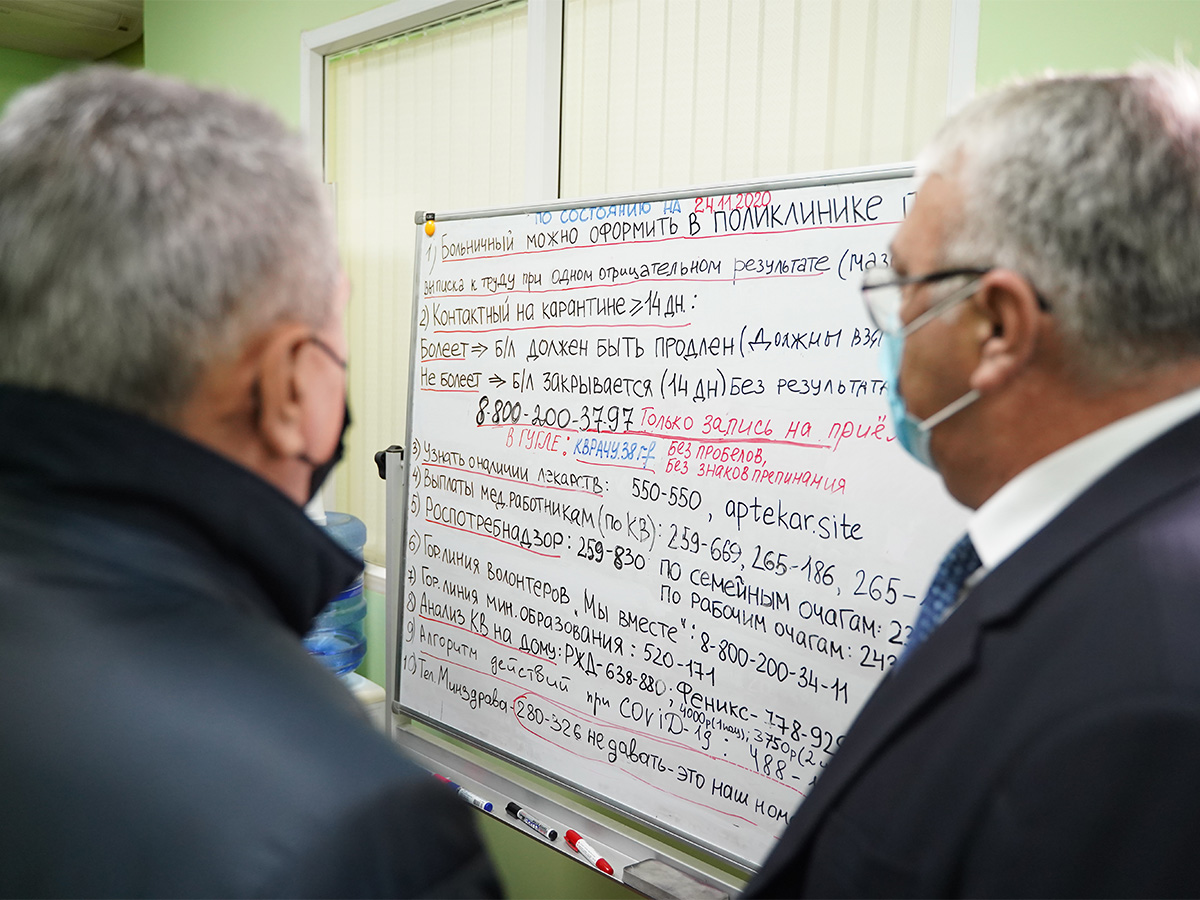 ПО СОСТОЯНИЮ НА 24.11.2020
1) Больничный можно оформить в поликлинике
выписка к труду при одном отрицательном результате (маз
2) Контактный на карантине ⩾ 14 дн.:
Болеет ⇒ Б/Л должен быть продлен (Должны взя
Не болеет ⇒ Б/Л закрывается (14 дн) Без результата
8-800-200-37-97 Только запись на приём
В ГУГЛЕ: КВРАЧУ.38гг Без пробелов,
без знаков препинания
3) Узнать о наличии лекарств: 550-550, aptekar.site
4) Выплаты мед. работникам (по КВ): 259-669, 265-186, 265-
5) Роспотребнадзор: 259-830 по семейным очагам: 2
по рабочим очагам: 243
6) Гор.линия волонтеров „Мы вместе“: 8-800-200-34-11
7) Гор. линия мин. образования: 520-171
8) Анализ КВ на дому: РЖД-638-880; Феникс-178-92
4000р (1 чел); 3750р (2
9) Алгоритм действий при COViD-19: 488-
10) Тел. Минздрава-280-326 не давать-это наш ном